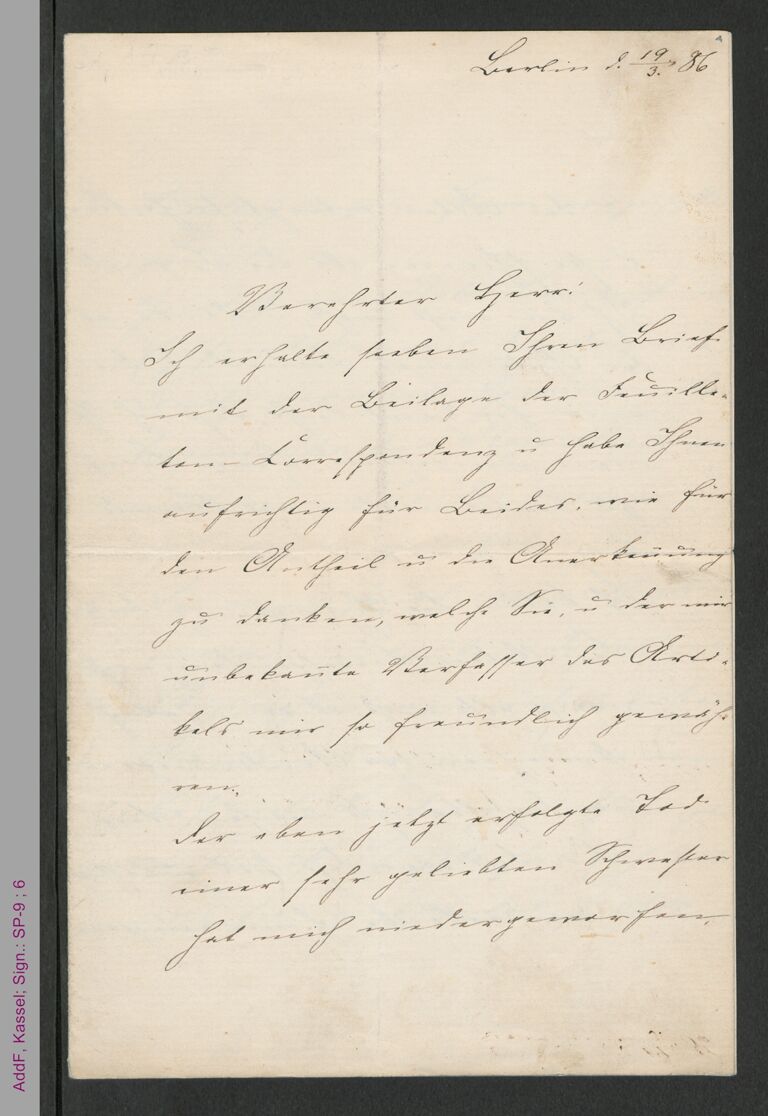 Berlin d. 19/3. 86
Verehrter Herr!
Ich erhalte soeben Ihren Brief
mit der Beilage der Feuille-
ton-Correspondenz u habe Ihnen
aufrichtig für Beides, wie für
den Antheil u die Anerkennung
zu danken, welche Sie, u der mir
unbekan̄te Verfasser des Arti-
kels mir so freundlich gewäh-
ren.
Der eben jetzt erfolgte Tod
einer sehr geliebten Schwester
hat mich niedergeworfen,
AddF, Kassel; Sign.: SP-9 ; 6